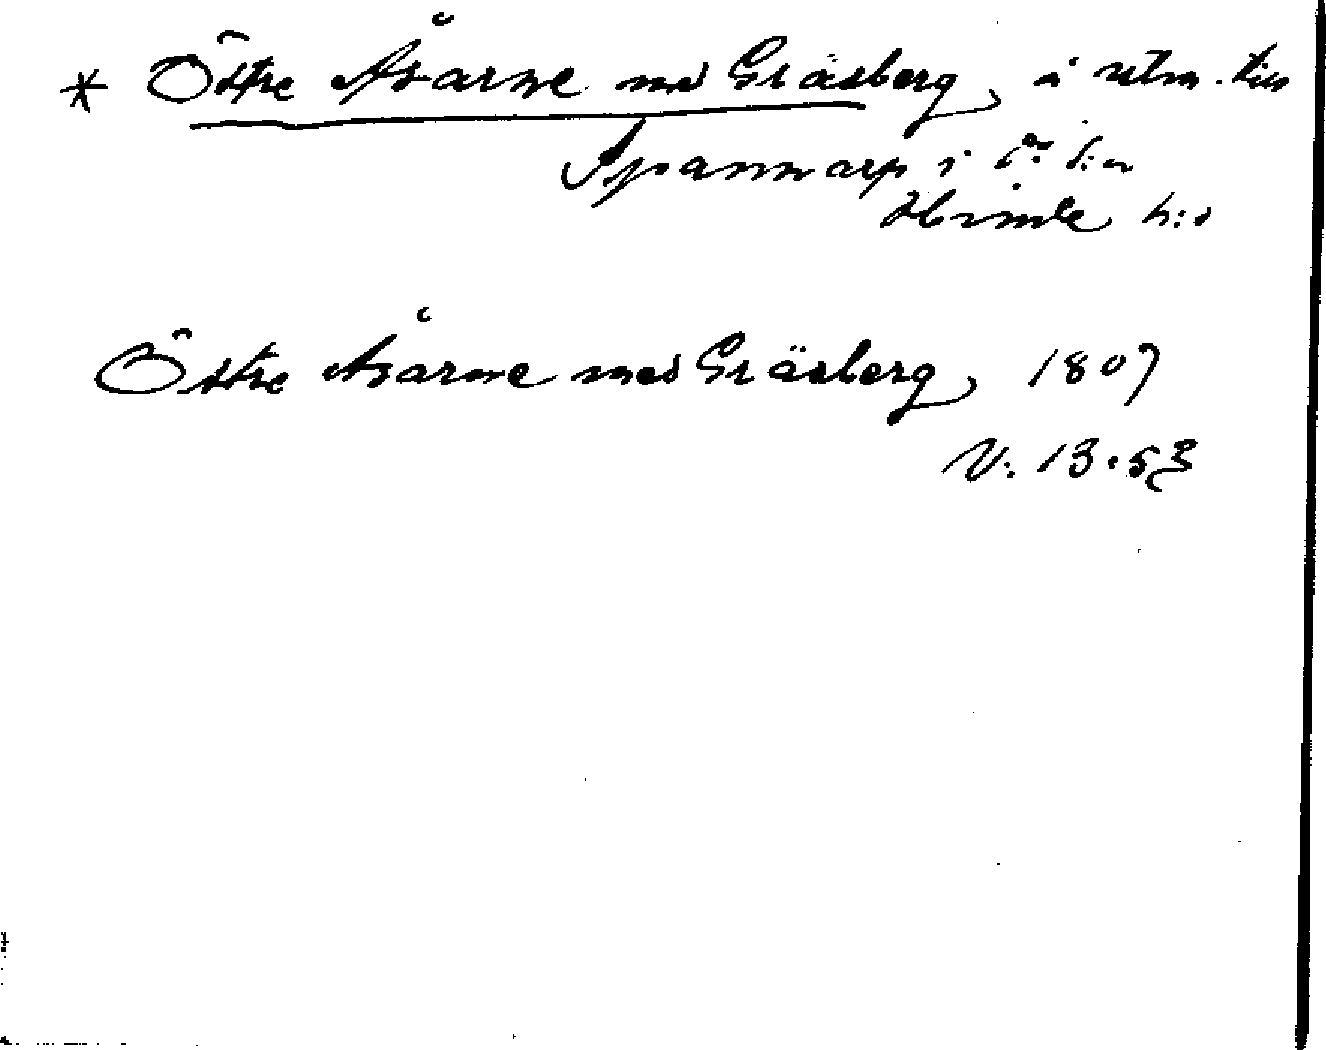 * Östre Åsarne med Gräsberg, å utm. till
Spannarp i
Himle h:d
Östre Åsarne med Gräsberg, 1807
V. 13.53